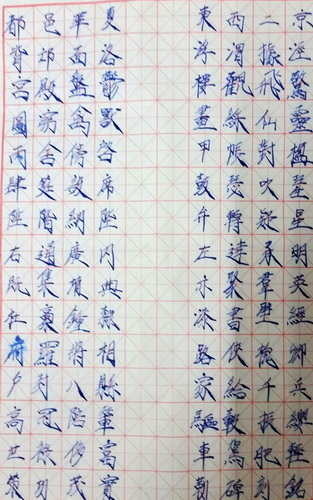 都邑華夏 東西二京
背邙面洛 浮渭據涇
宮殿盤鬱 樓觀飛驚
圖寫禽獸 畫綵仙靈
丙舍傍啓 甲帳對楹
肆筵設席 鼓瑟吹笙
陞階納陛 弁轉疑星
右通廣內 左達承明
既集墳典 亦聚羣英
杜稾鍾隸 漆書壁經
府羅將相 路俠槐卿
戶封八縣 家給千兵
高冠陪輦 驅轂振纓
世祿侈富 車駕肥輕
策功茂實 勒碑刻銘